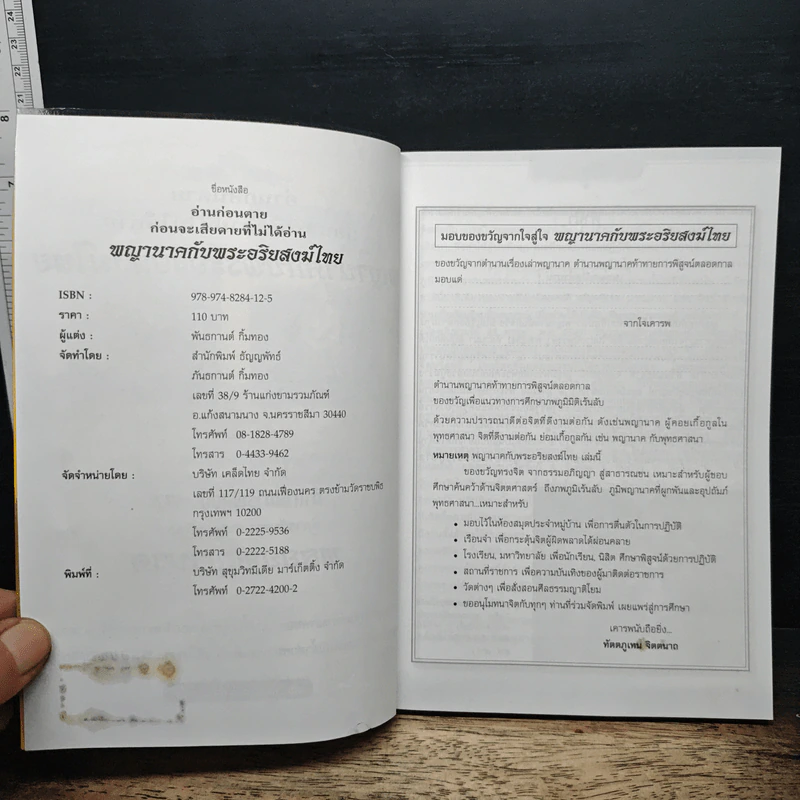 ชื่อหนังสือ
อ่านก่อนตาย
ก่อนจะเสียดายที่ไม่ได้อ่าน
พญานาคกับพระอริยสงฆ์ไทย
ISBN : 978-974-8284-12-5
ราคา : 110 บาท
ผู้แต่ง : พันธกานต์ กิ้มทอง
จัดทำโดย : สำนักพิมพ์ ธัญญพัทธ์
ภันธกานต์ กิ้มทอง
เลขที่ 38/9 ร้านแก่งยามรวมภัณฑ์
อ.แก้งสนามนาง จ.นครราชสีมา 30440
โทรศัพท์ 08-1828-4789
โทรสาร 0-4433-9462
จัดจำหน่ายโดย : บริษัท เคล็ดไทย จำกัด
เลขที่ 117/119 ถนนเฟื่องนคร ตรงข้ามวัดราชบพิธ
กรุงเทพฯ 10200
โทรศัพท์ 0-2225-9536
โทรสาร 0-2222-5188
พิมพ์ที่ : บริษัท สุขุมวิทมีเดีย มาร์เก็ตติ้ง จำกัด
โทรศัพท์ 0-2722-4200-2
มอบของขวัญจากใจสู่ใจ พญานาคกับพระอริยสงฆ์ไทย
ของขวัญจากตำนานเรื่องเล่าพญานาค ตำนานพญานาคท้าทายการพิสูจน์ตลอดกาล
มอบแด่
จากใจเคารพ
ตำนานพญานาคท้าทายการพิสูจน์ตลอดกาล
ของขวัญเพื่อแนวทางการศึกษาภพภูมิมิติเร้นลับ
ด้วยความปรารถนาดีต่อจิตที่ดีงามต่อกัน ดังเช่นพญานาค ผู้คอยเกื้อกูลใน
พุทธศาสนา จิตที่ดีงามต่อกัน ย่อมเกื้อกูลกัน เช่น พญานาค กับพุทธศาสนา
หมายเหตุ พญานาคกับพระอริยสงฆ์ไทย เล่มนี้
ของขวัญทรงจิต จากธรรมอภิญญา สู่สาธารณชน เหมาะสำหรับผู้ชอบ
ศึกษาค้นคว้าด้านจิตตศาสตร์ ถึงภพภูมิเร้นลับ ภูมิพญานาคที่ผูกพันและอุปถัมภ์
พุทธศาสนา...เหมาะสำหรับ
• มอบไว้ในห้องสมุดประจำหมู่บ้าน เพื่อการตื่นตัวในการปฏิบัติ
• เรือนจำ เพื่อกระตุ้นจิตผู้ผิดพลาดได้ผ่อนคลาย
• โรงเรียน, มหาวิทยาลัย เพื่อนักเรียน, นิสิต ศึกษาพิสูจน์ด้วยการปฏิบัติ
• สถานที่ราชการ เพื่อความบันเทิงของผู้มาติดต่อราชการ
• วัดต่างๆ เพื่อสั่งสอนศีลธรรมญาติโยม
• ขออนุโมทนาจิตกับทุกๆ ท่านที่ร่วมจัดพิมพ์ เผยแพร่สู่การศึกษา
เคารพนับถือยิ่ง...
ทัตตภูเทน จิตตนาถ
24
23
22
21
8
7